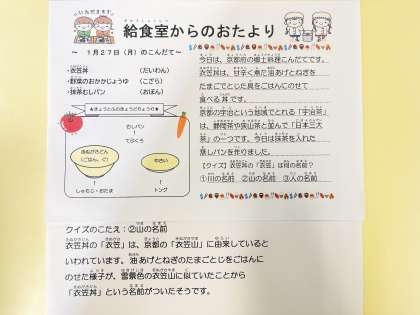 いただきます
給食室からのおたより
～ １月２７日（月）のこんだて～
・衣笠丼　　（だいわん）
・野菜のおかかじょうゆ　（こざら）
・抹茶むしパン　　（おぼん）
むしパン
↑
てぶくろ
（ごはん、ぐ）
↑
しゃもじ・おたま
やさい
↑
トング
今日は、京都府の郷土料理こんだてです。
衣笠丼は、甘辛く煮た油あげとねぎを
たまごでとじた具をごはんにのせて
食べる丼です。
京都の宇治という地域でとれる「宇治茶」
は、静岡茶や狭山茶と並んで「日本三大
茶」の一つです。今日は抹茶を入れた
蒸しパンを作りました。
【クイズ】衣笠丼の「衣笠」は何の名前？
①川の名前　②山の名前　③人の名前
クイズのこたえ：②山の名前
衣笠丼の「衣笠」は、京都の「衣笠山」に由来していると
いわれています。油あげとねぎのたまごとじをごはんに
のせた様子が、雪景色の衣笠山に似ていたことから
「衣笠丼」という名前がついたそうです。